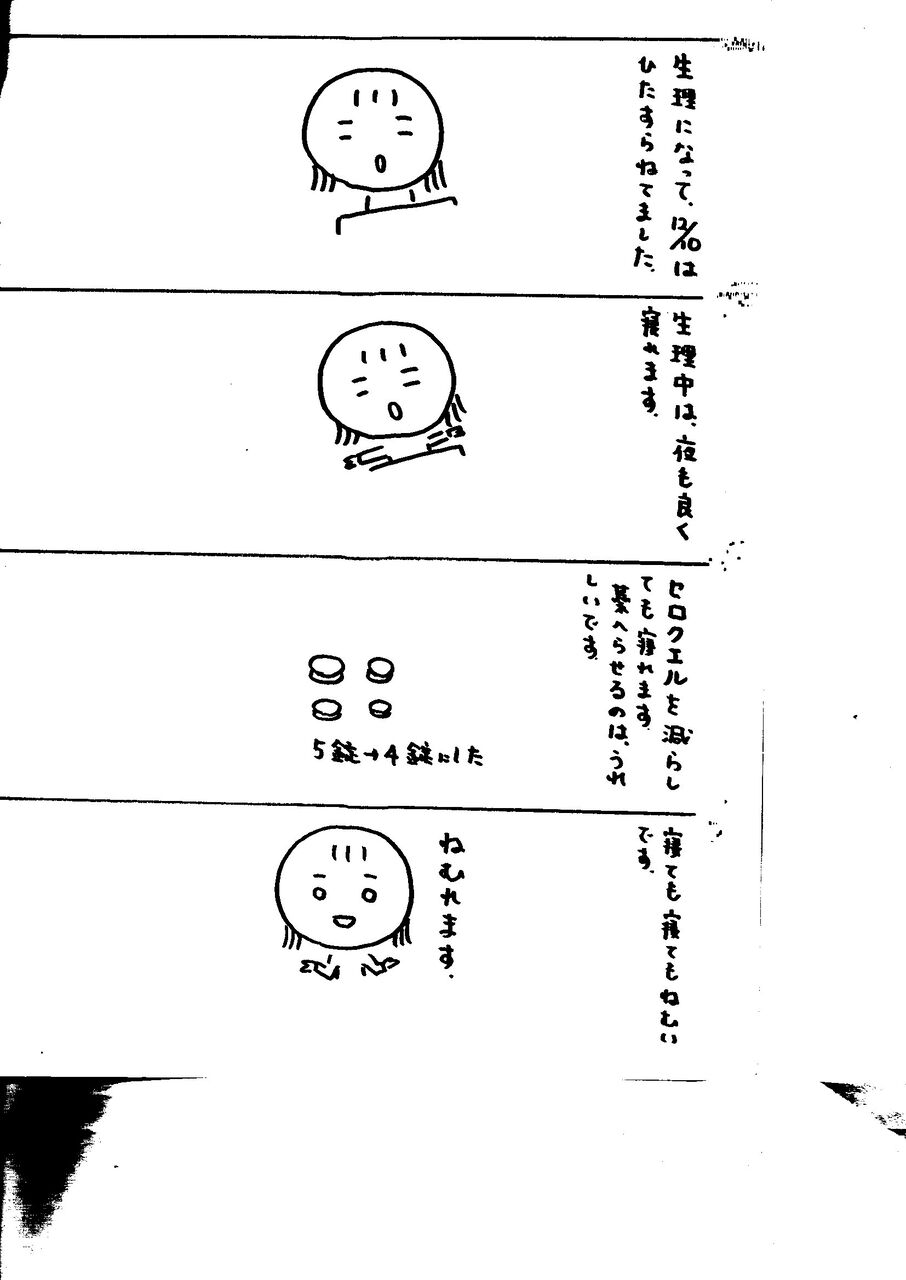 生理になって、12/10は
ひたすらねてました。
生理中は、夜も良く
寝れます。
セロクエルを減らし
ても寝れます。
薬へらせるのは、うれ
しいです。
5錠→4錠にした
寝ても寝てもねむい
です。
ねむれます。